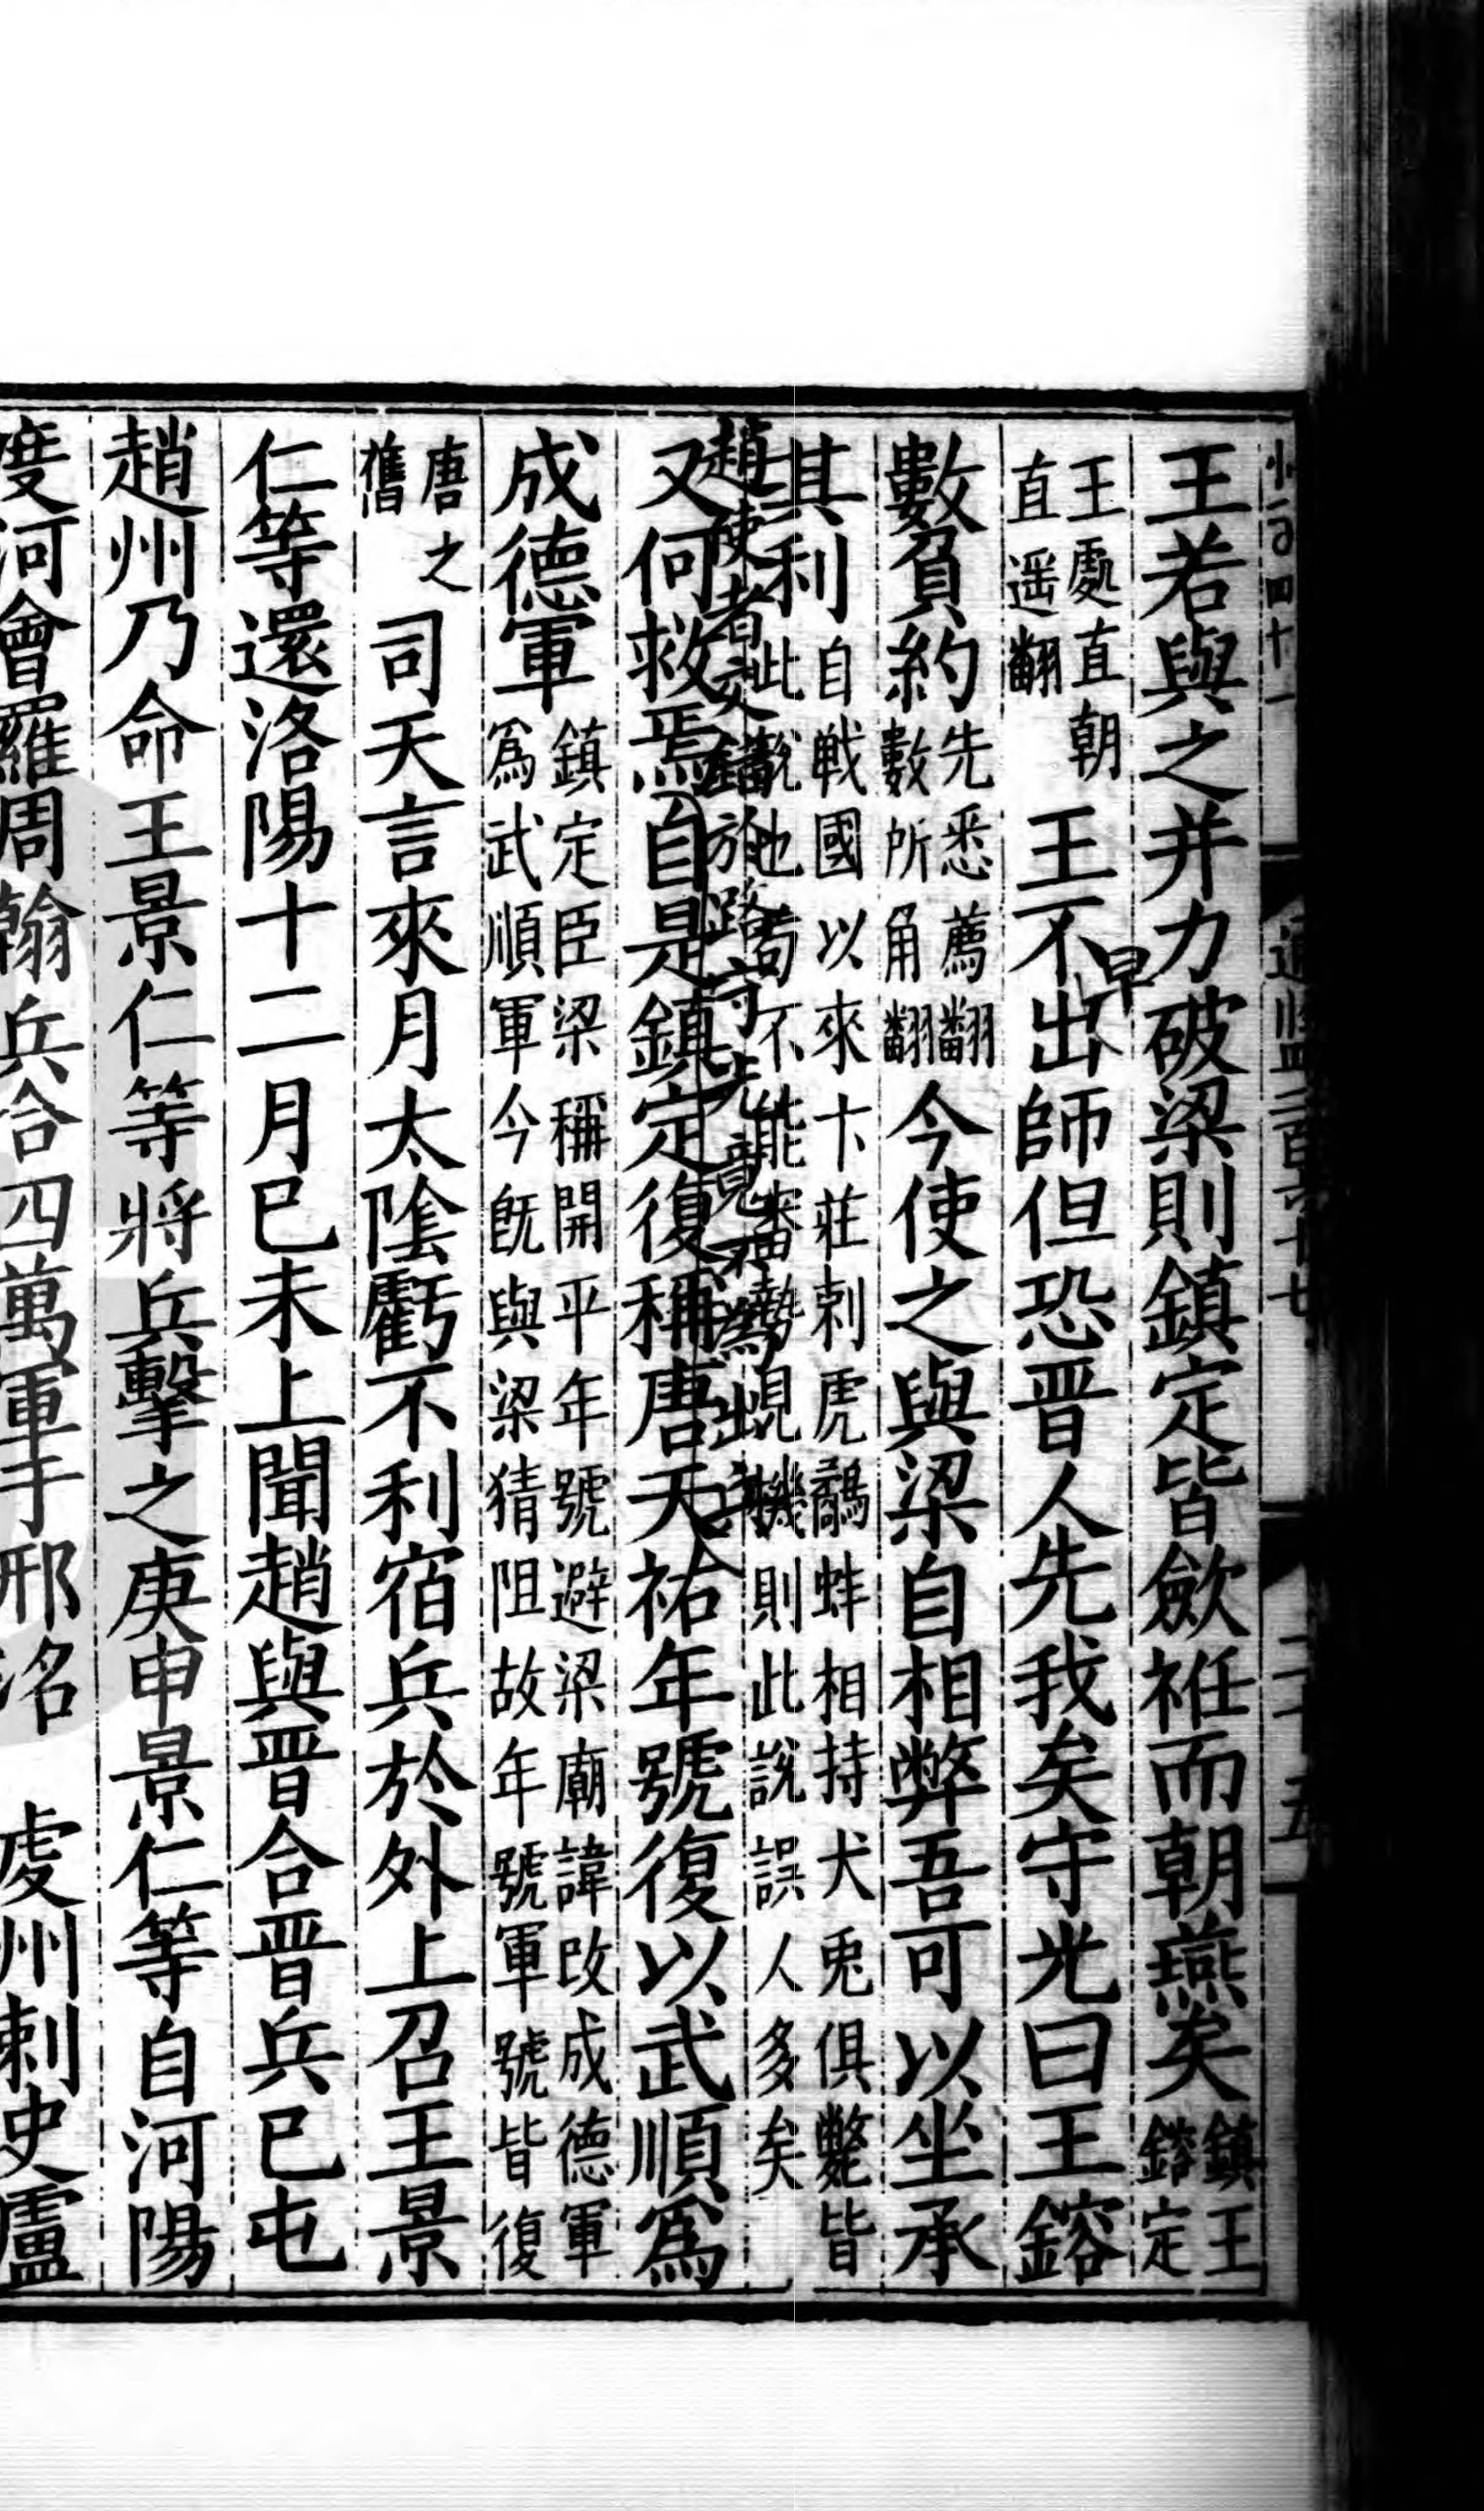 王若與之并力破梁則鎮定皆歛袵而朝燕矣鎮王鎔定
王處直朝直遥翻王不出師但恐晋人先我矣守光曰王鎔
早
數負約先悉薦翻數所角翻今使之與梁自相弊吾可以坐承
其利自戦國以來卞莊刺虎鷸蚌相持犬兎俱斃皆此說也苟不能審勢見機則此說誤人多矣
趙使者交錯於路守光竟不爲出兵
又何救焉自是鎮定復稱唐天祐年號復以武順爲
成德軍鎮定臣梁稱開平年號避梁廟諱改成德軍爲武順軍今旣與梁猜阻故年號軍號皆復
唐之舊司天言來月太陰虧不利宿兵於外上召王景
仁等還洛陽十二月巳未上聞趙與晋合晋兵巳屯
趙州乃命王景仁等將兵擊之庚申景仁等自河陽
度河會羅周翰兵合四萬軍于邢洺 虔州刺史盧